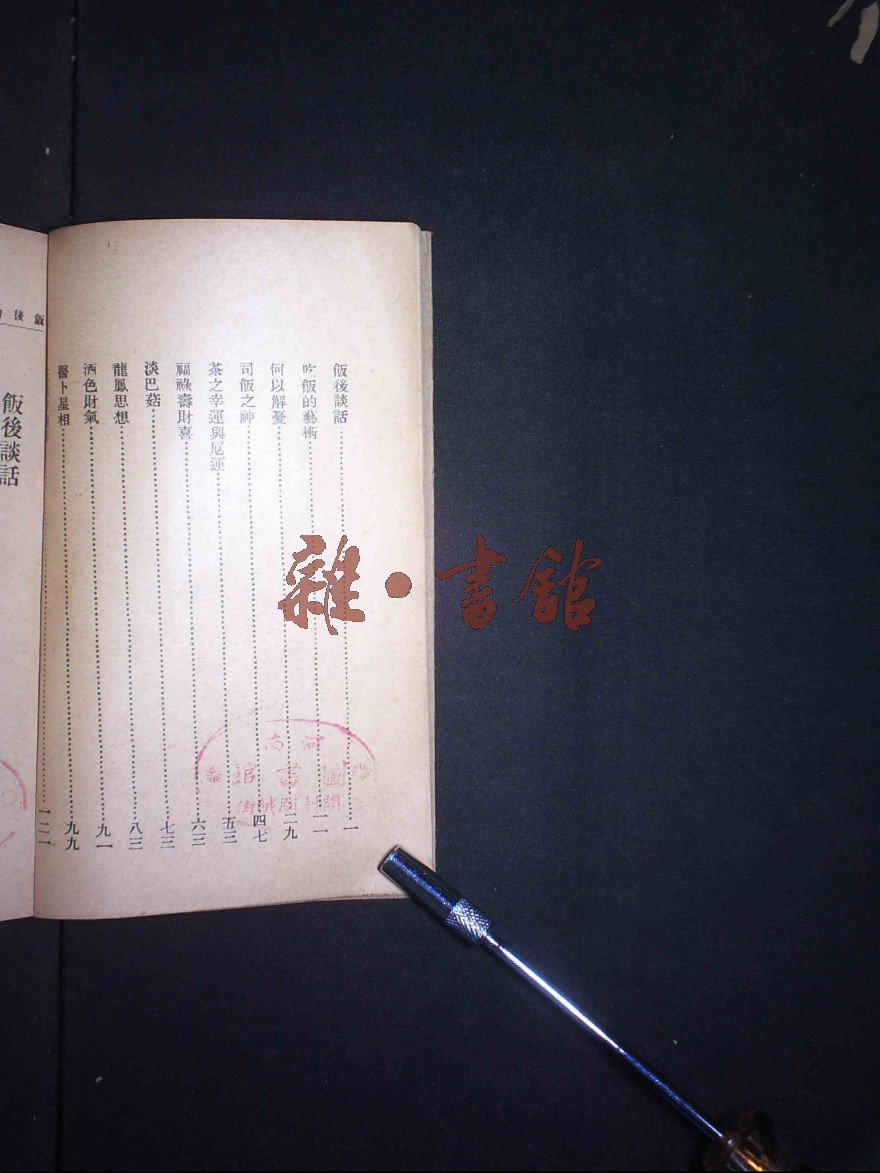 飯後談話……一
吃飯的藝術……一一
何以解憂……二九
司飯之神……四七
茶之幸運與厄運……五三
福祿壽財喜……六三
淡巴菇……七三
龍鳳思想……八三
酒色財氣……九一
醫卜星相……九九
……一二一
飯後
飯後談話
雜·書館
河南
圖書館